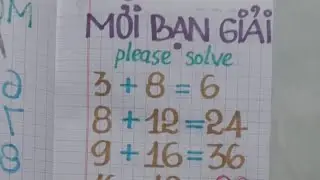 MỞI BẠN GIẢI
please solve
3 + 8 = 6
8 + 12 = 24
9 + 16 = 36